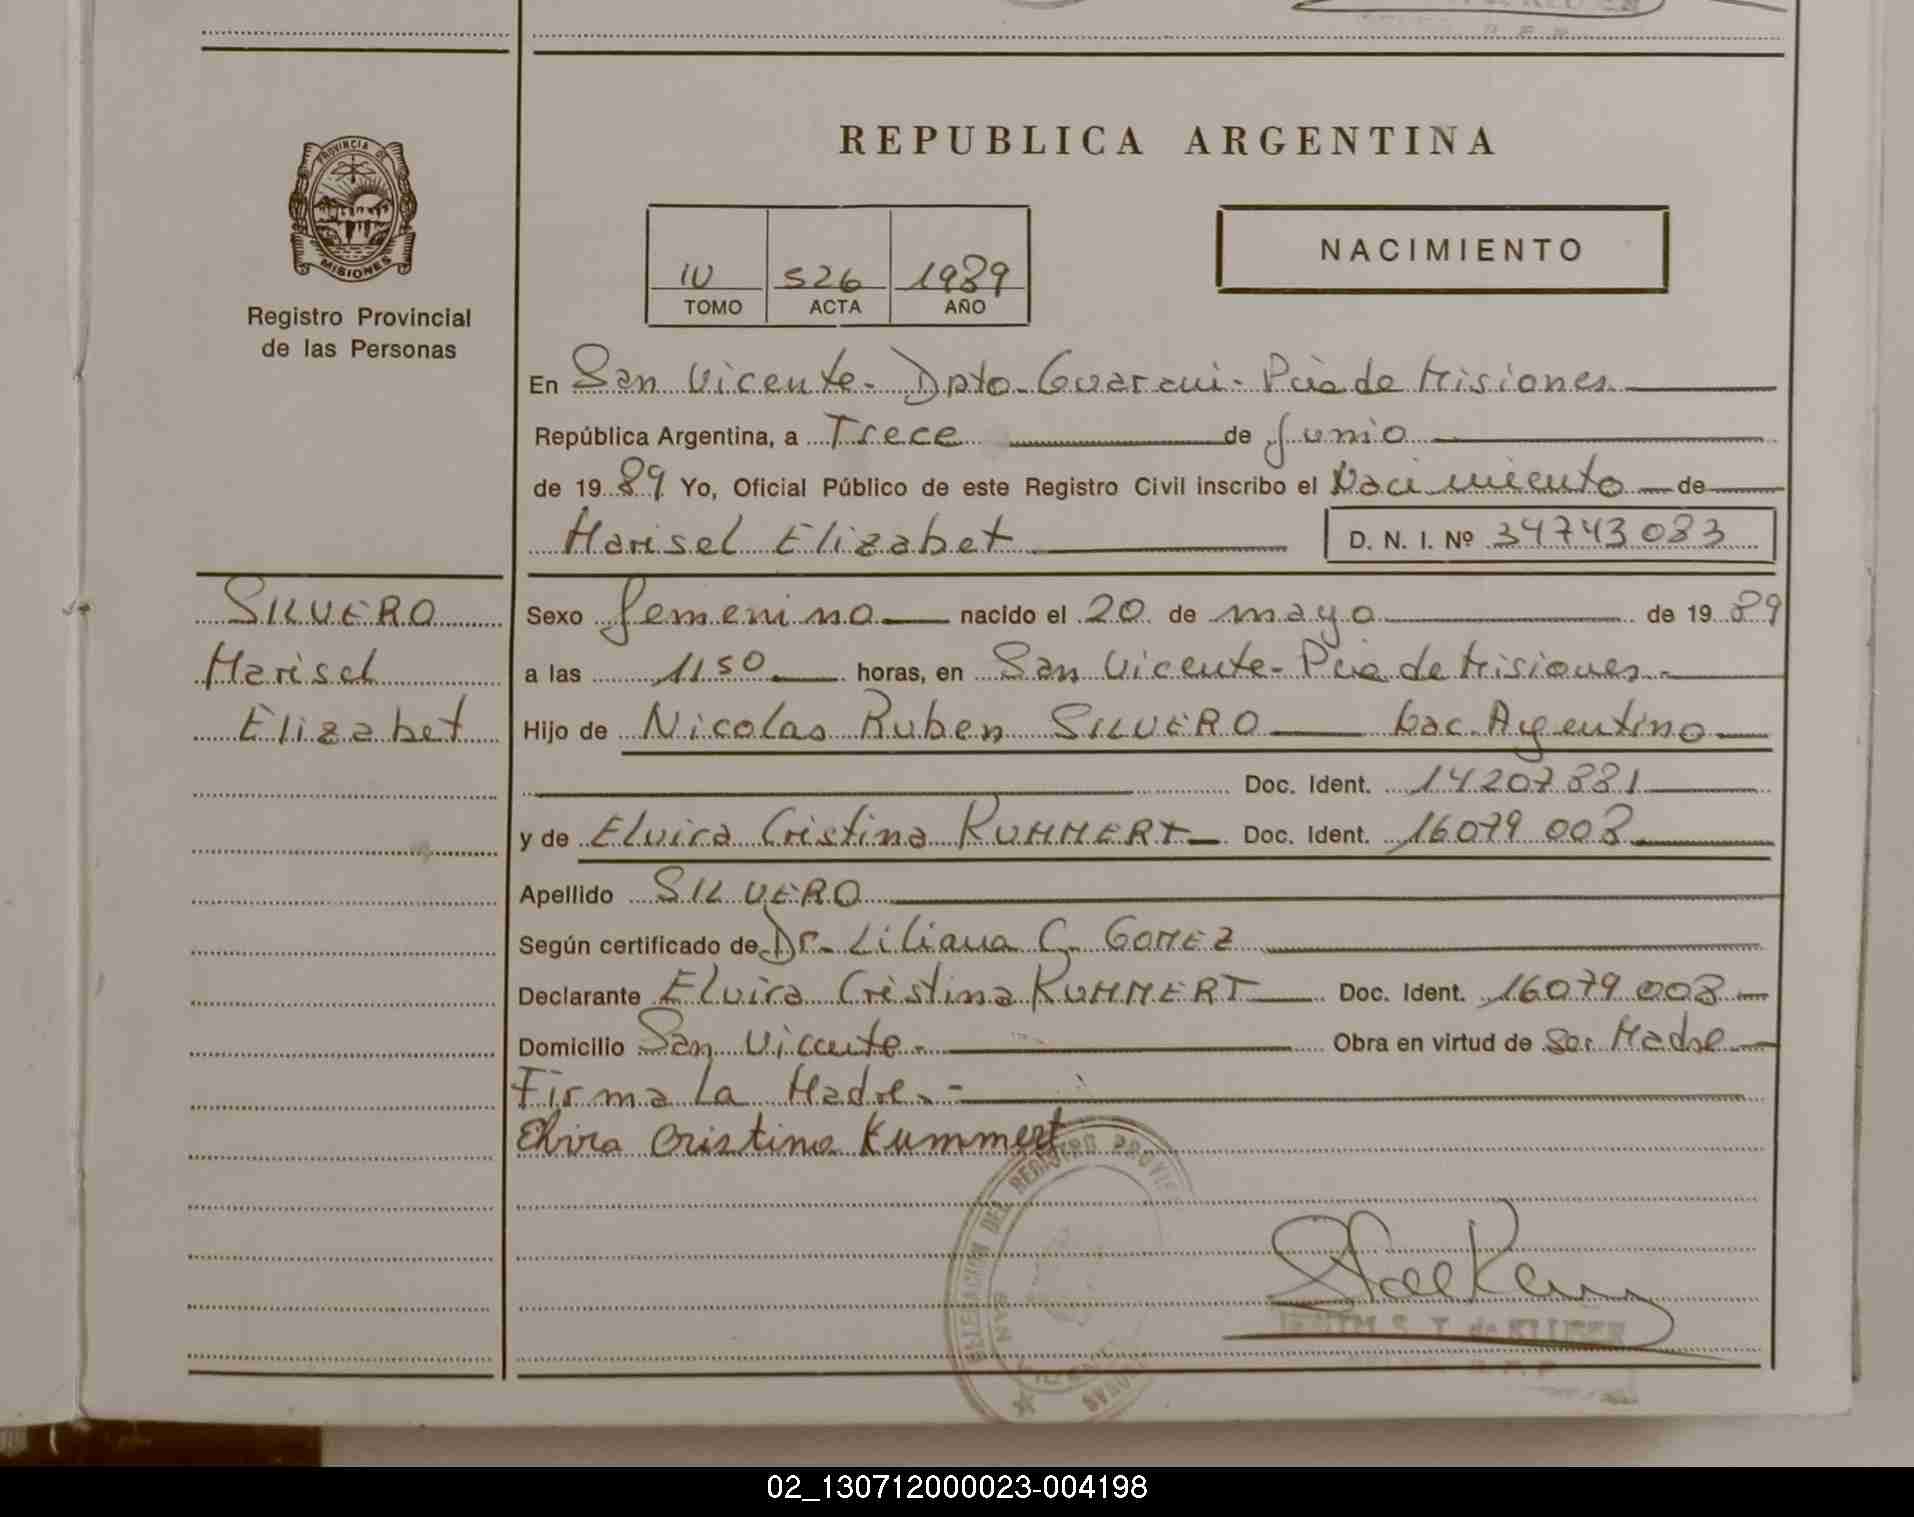 REPUBLICA ARGENTINA
PROVINCIA DE
MISIONES
Registro Provincial
de las Personas
IV 526 1989
TOMO ACTA AÑO
NACIMIENTO
En San Vicente - Dpto - Guarani - Pcia de Misiones
República Argentina, a Trece de Junio
de 1989 Yo, Oficial Público de este Registro Civil inscribo el Nacimiento de
Marisel Elizabet D. N. I. Nº 34743083
SILVERO
Marisel
Elizabet
Sexo femenino nacido el 20 de mayo de 1989
a las 11 50 horas, en San Vicente - Pcia de Misiones -
Hijo de Nicolas Ruben SILVERO Nac. Argentino
Doc. Ident. 14207881
y de Elvira Cristina KUMMERT Doc. Ident. 16079 008
Apellido SILVERO
Según certificado de Dr. Liliana C. GOMEZ
Declarante Elvira Cristina KUMMERT Doc. Ident. 16079 008
Domicilio San Vicente - Obra en virtud de Ser Madre
Firma La Madre. -
Elvira Cristina Kummert
DELEGACION DEL REGISTRO PROVIN
SAN VICENTE
02_130712000023-004198